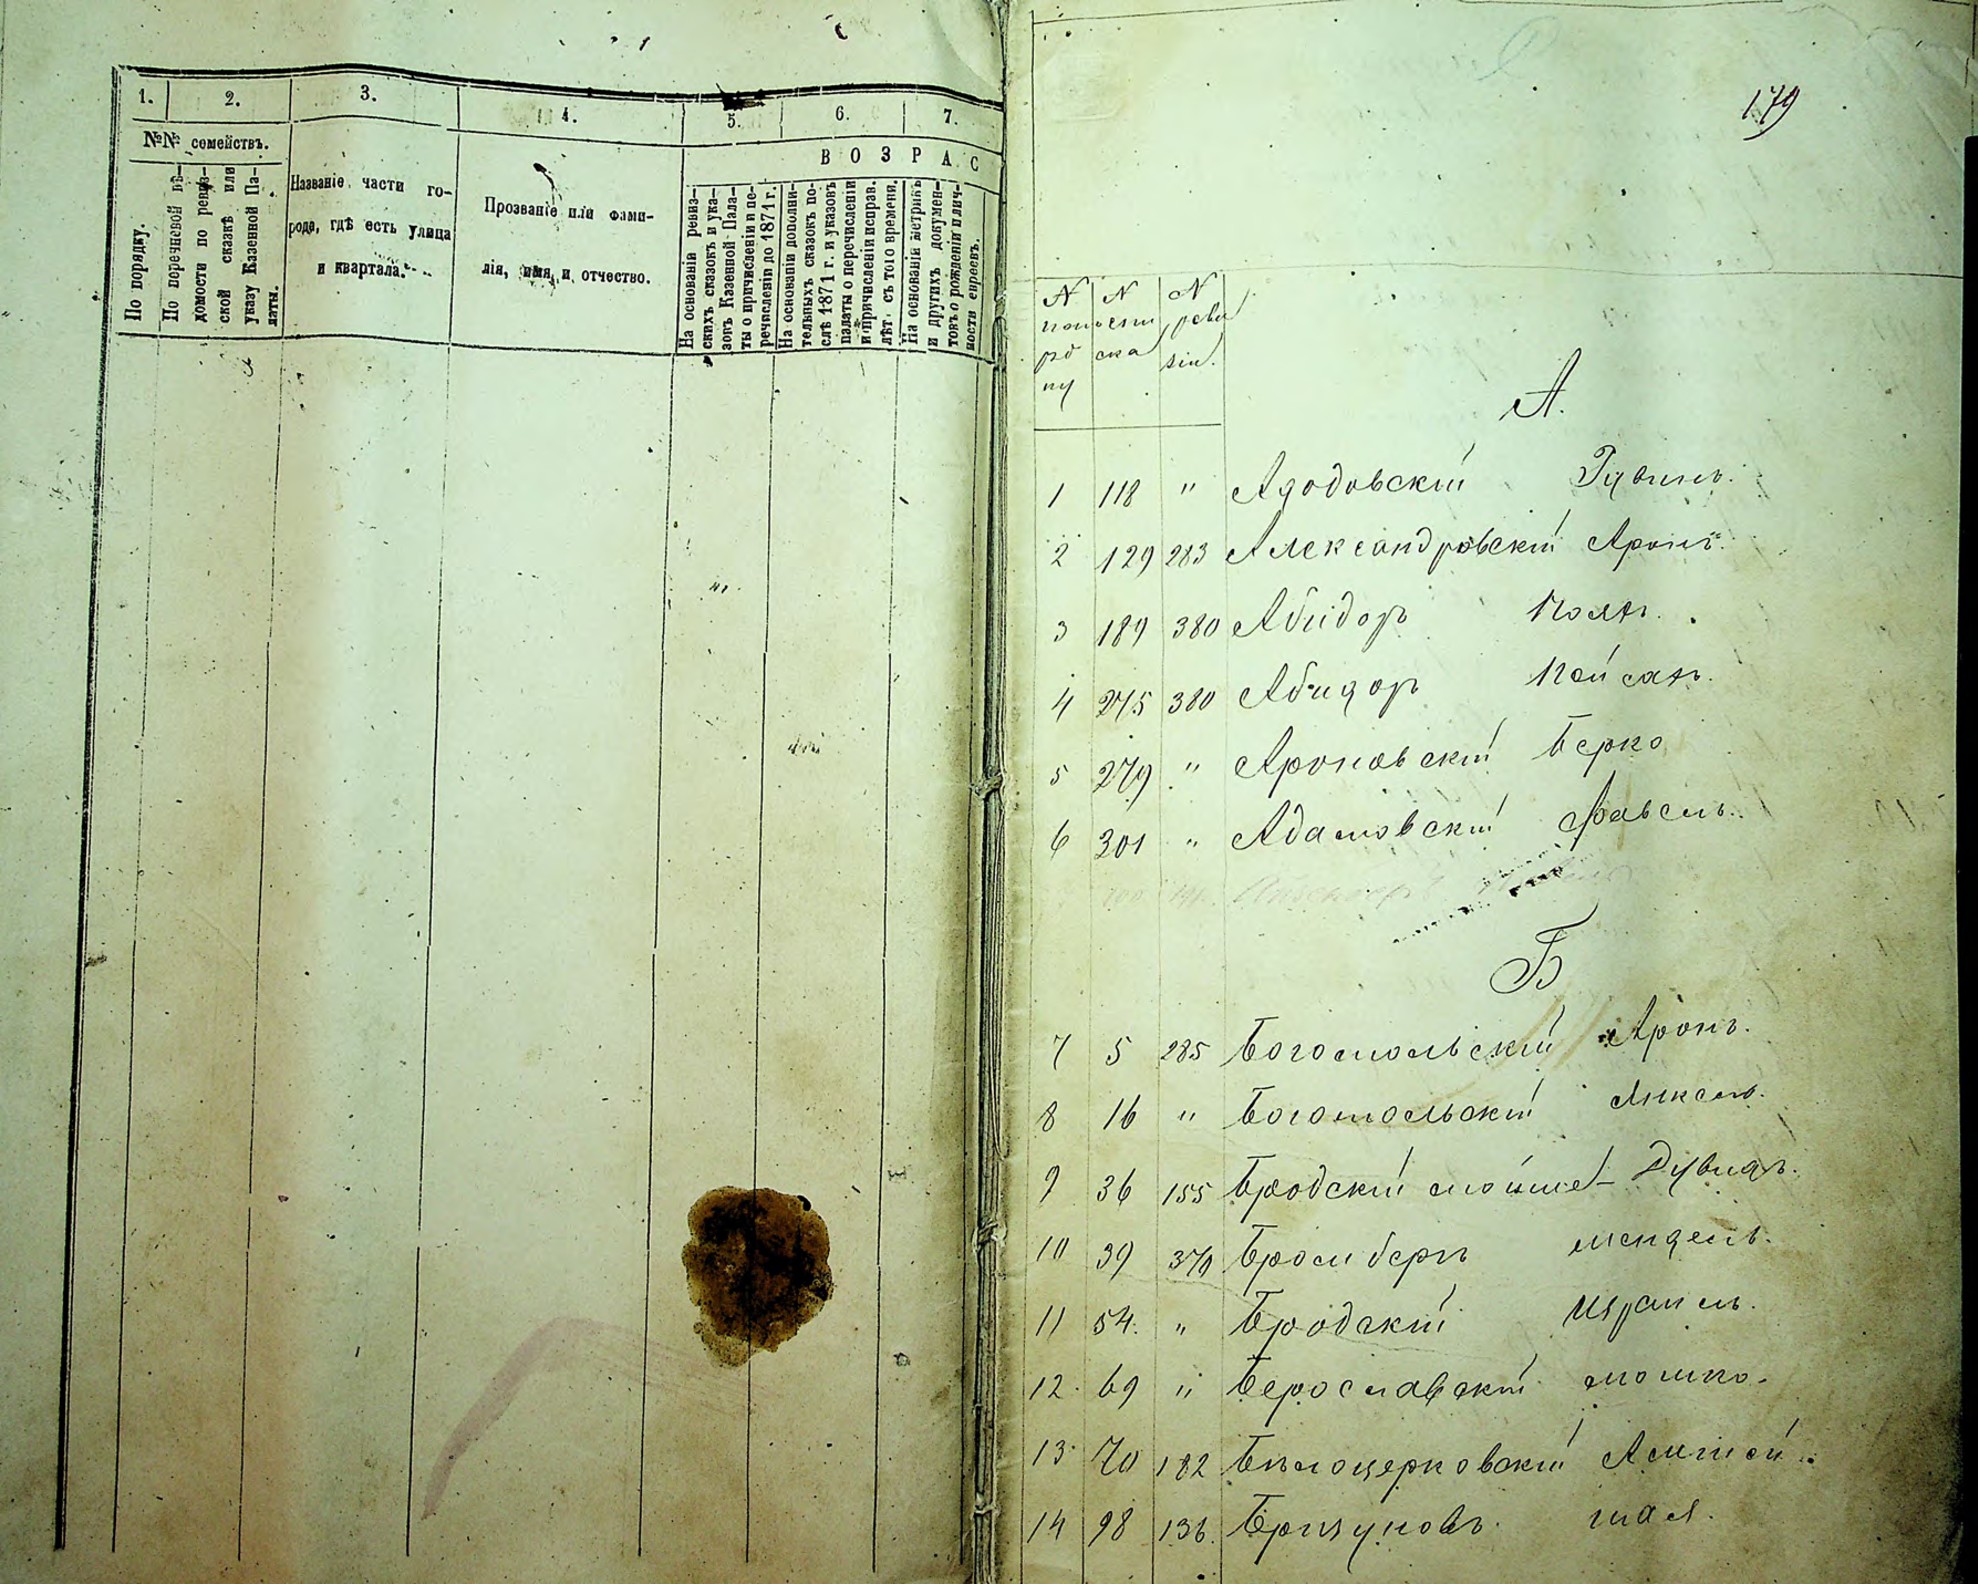 1. 2. 3. 4. 5. 6. 7.
№№ семействъ.
ВОЗРАС
По порядку.
По перечневой вѣ-
домости по ревиз-
ской сказкѣ или
указу Казенной Па-
латы.
Названіе части го-
рода, гдѣ есть улица
и квартала.
Прозваніе или фами-
лія, имя и отчество.
На основаніи ревиз-
скихъ сказокъ и ука-
зовъ Казенной Пала-
ты о причисленіи и пе-
речисленіи до 1871 г.
На основаніи дополни-
тельныхъ сказокъ по-
слѣ 1871 г. и указовъ
палаты о перечисленіи
и причисленіи исправ.
лѣт. съ того времени.
На основаніи метрикъ
и другихъ докумен-
товъ о рожденіи и лич-
ности евреевъ.
179
N N N
по посем реви
ря ска зіи.
ду
А.
1 118 " Адодовскій Рувинъ.
2 129 283 Александровскій Аронъ.
3 189 380 Абидоръ
4 275 380 Абидоръ
5 279 " Ароновскій Берко
6 301 " Адамовскій Файвель.
Б
7 5 285 Богомольскій Аронъ.
8 16 " Богомольскій Янкель.
9 36 155 Бродскій Мойше-Дувидъ.
10 39 370 Бромбергъ Мендель.
11 54. " Бродскій Израиль.
12. 69 " Берославскій Мошко.
13. 70 182 Бѣлоцерковскій
14 98 136. Бризуновъ. Шая.